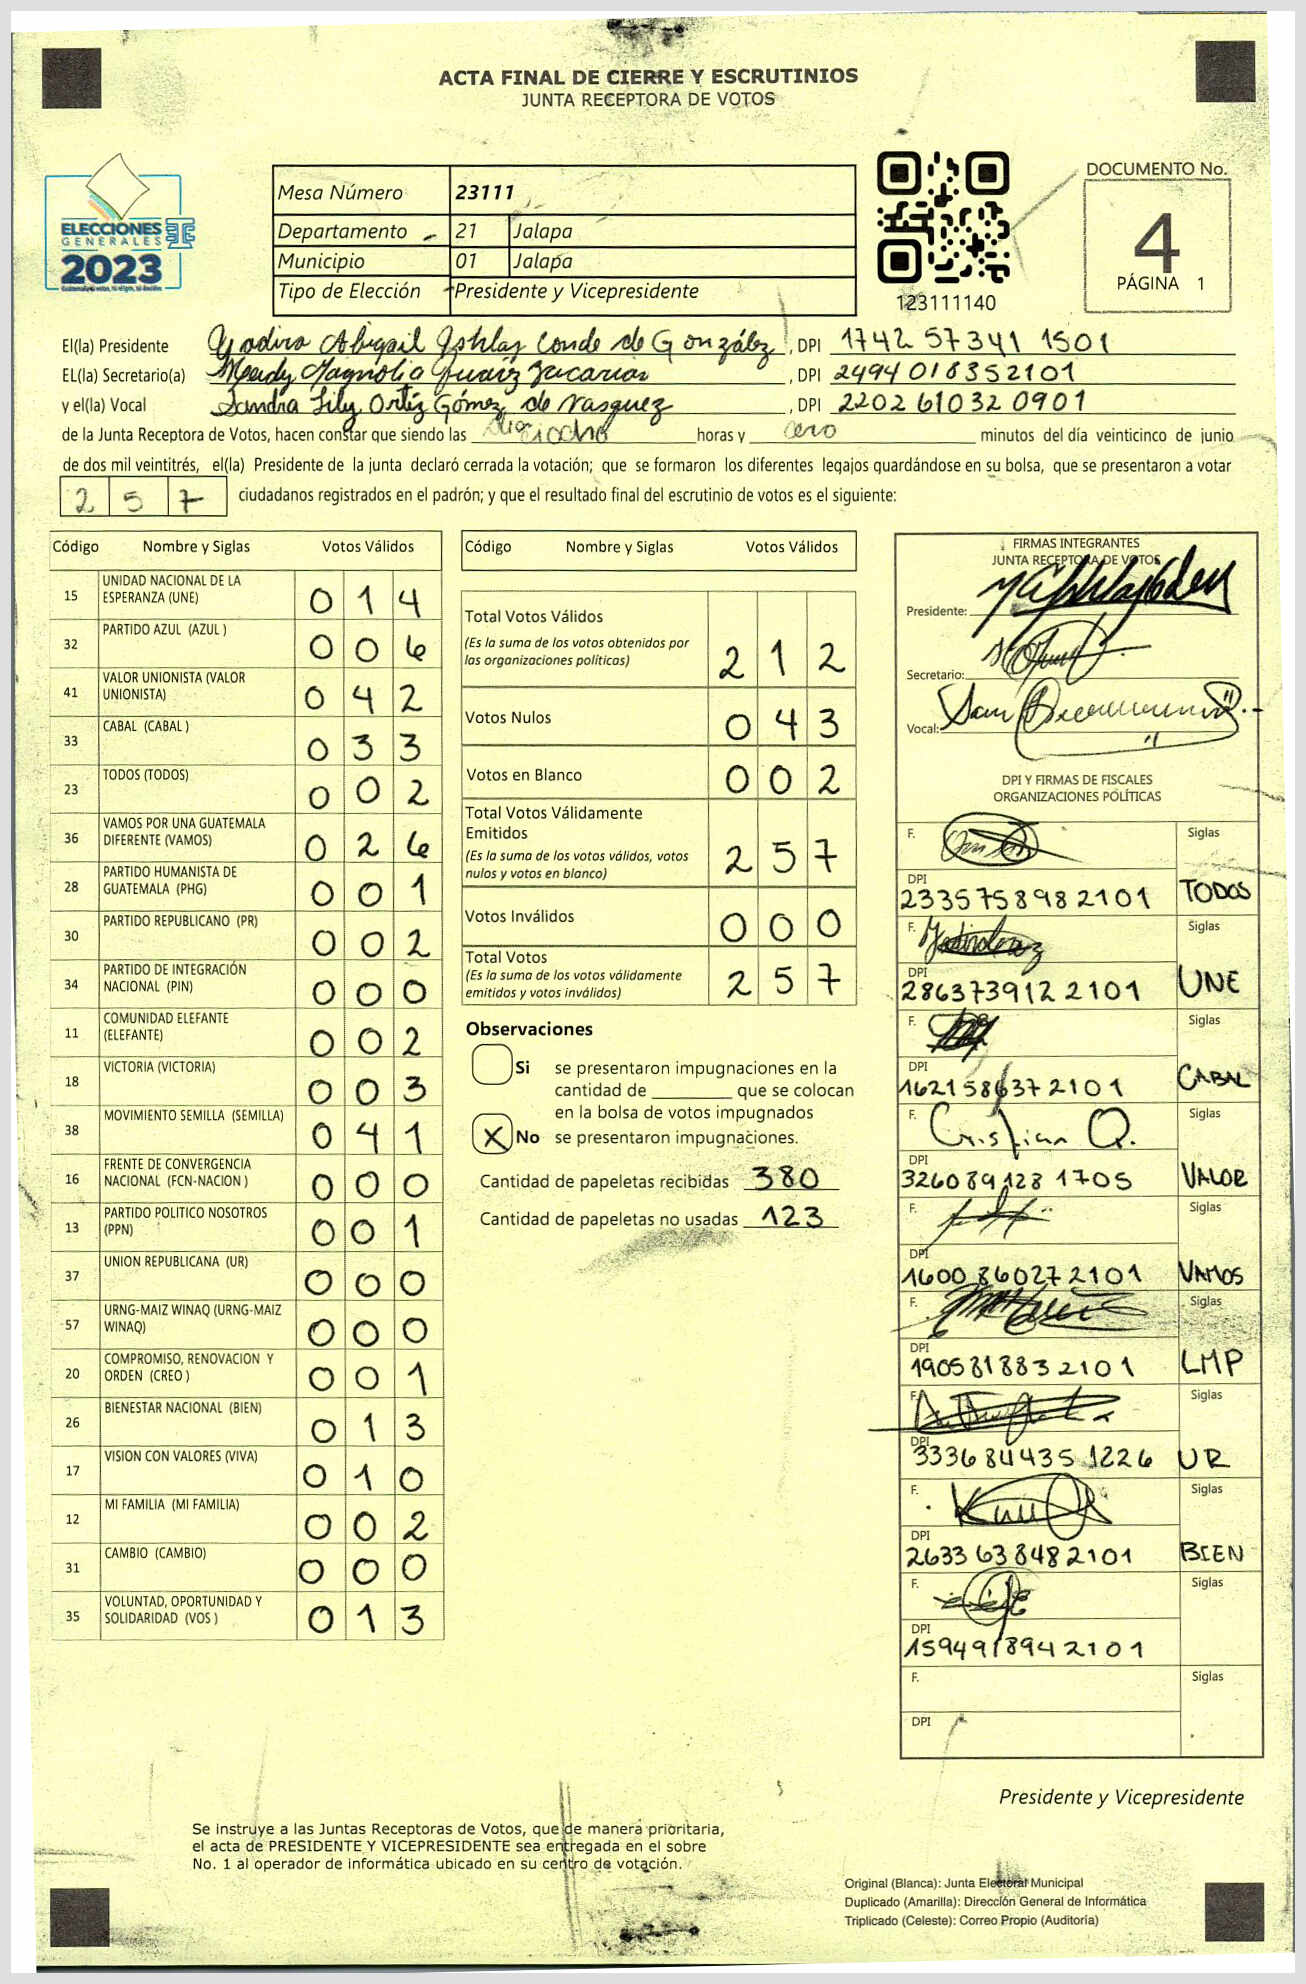 ACTA FINAL DE CIERRE Y ESCRUTINIOS
JUNTA RECEPTORA DE VOTOS
ELECCIONES
GENERALES
2023
Mesa Número 23111
Departamento 21 Jalapa
Municipio 01 Jalapa
Tipo de Elección Presidente y Vicepresidente
123111140
DOCUMENTO No.
4
PÁGINA 1
El(la) Presidente Yadira Abigail Conde de González, DPI 1742 57341 1501
EL(la) Secretario(a) Magnolia, DPI 2494 018352101
y el(la) Vocal Sandra Lily Ortíz Gómez de Vasquez, DPI 2202 61032 0901
de la Junta Receptora de Votos, hacen constar que siendo las dieciocho horas y cero minutos del día veinticinco de junio
de dos mil veintitrés, el(la) Presidente de la junta declaró cerrada la votación; que se formaron los diferentes legajos guardándose en su bolsa, que se presentaron a votar
2 5 7 ciudadanos registrados en el padrón; y que el resultado final del escrutinio de votos es el siguiente:
Código Nombre y Siglas Votos Válidos
15 UNIDAD NACIONAL DE LA ESPERANZA (UNE) 0 1 4
32 PARTIDO AZUL (AZUL ) 0 0 6
41 VALOR UNIONISTA (VALOR UNIONISTA) 0 4 2
33 CABAL (CABAL ) 0 3 3
23 TODOS (TODOS) 0 0 2
36 VAMOS POR UNA GUATEMALA DIFERENTE (VAMOS) 0 2 6
28 PARTIDO HUMANISTA DE GUATEMALA (PHG) 0 0 1
30 PARTIDO REPUBLICANO (PR) 0 0 2
34 PARTIDO DE INTEGRACIÓN NACIONAL (PIN) 0 0 0
11 COMUNIDAD ELEFANTE (ELEFANTE) 0 0 2
18 VICTORIA (VICTORIA) 0 0 3
38 MOVIMIENTO SEMILLA (SEMILLA) 0 4 1
16 FRENTE DE CONVERGENCIA NACIONAL (FCN-NACION ) 0 0 0
13 PARTIDO POLITICO NOSOTROS (PPN) 0 0 1
37 UNION REPUBLICANA (UR) 0 0 0
57 URNG-MAIZ WINAQ (URNG-MAIZ WINAQ) 0 0 0
20 COMPROMISO, RENOVACION Y ORDEN (CREO ) 0 0 1
26 BIENESTAR NACIONAL (BIEN) 0 1 3
17 VISION CON VALORES (VIVA) 0 1 0
12 MI FAMILIA (MI FAMILIA) 0 0 2
31 CAMBIO (CAMBIO) 0 0 0
35 VOLUNTAD, OPORTUNIDAD Y SOLIDARIDAD (VOS ) 0 1 3
Código Nombre y Siglas Votos Válidos
Total Votos Válidos
(Es la suma de los votos obtenidos por
las organizaciones políticas) 2 1 2
Votos Nulos 0 4 3
Votos en Blanco 0 0 2
Total Votos Válidamente
Emitidos
(Es la suma de los votos válidos, votos
nulos y votos en blanco) 2 5 7
Votos Inválidos 0 0 0
Total Votos
(Es la suma de los votos válidamente
emitidos y votos inválidos) 2 5 7
Observaciones
Si se presentaron impugnaciones en la
cantidad de ________ que se colocan
en la bolsa de votos impugnados
X No se presentaron impugnaciones.
Cantidad de papeletas recibidas 380
Cantidad de papeletas no usadas 123
FIRMAS INTEGRANTES
JUNTA RECEPTORA DE VOTOS
Presidente:
Secretario:
Vocal:
DPI Y FIRMAS DE FISCALES
ORGANIZACIONES POLÍTICAS
F. Siglas
DPI
2335758982101 TODOS
F. Siglas
DPI
2863739122101 UNE
F. Siglas
DPI
1621586372101 CABAL
F. Cristian O. Siglas
DPI
3260891281705 VALOR
F. Siglas
DPI
1600860272101 VAMOS
F. Siglas
DPI
1905818832101 LMP
F. Siglas
DPI
3336844351226 UR
F. Siglas
DPI
2633638482101 BIEN
F. Siglas
DPI
1594918942101
F. Siglas
DPI
Presidente y Vicepresidente
Se instruye a las Juntas Receptoras de Votos, que de manera prioritaria,
el acta de PRESIDENTE Y VICEPRESIDENTE sea entregada en el sobre
No. 1 al operador de informática ubicado en su centro de votación.
Original (Blanca): Junta Electoral Municipal
Duplicado (Amarilla): Dirección General de Informática
Triplicado (Celeste): Correo Propio (Auditoría)